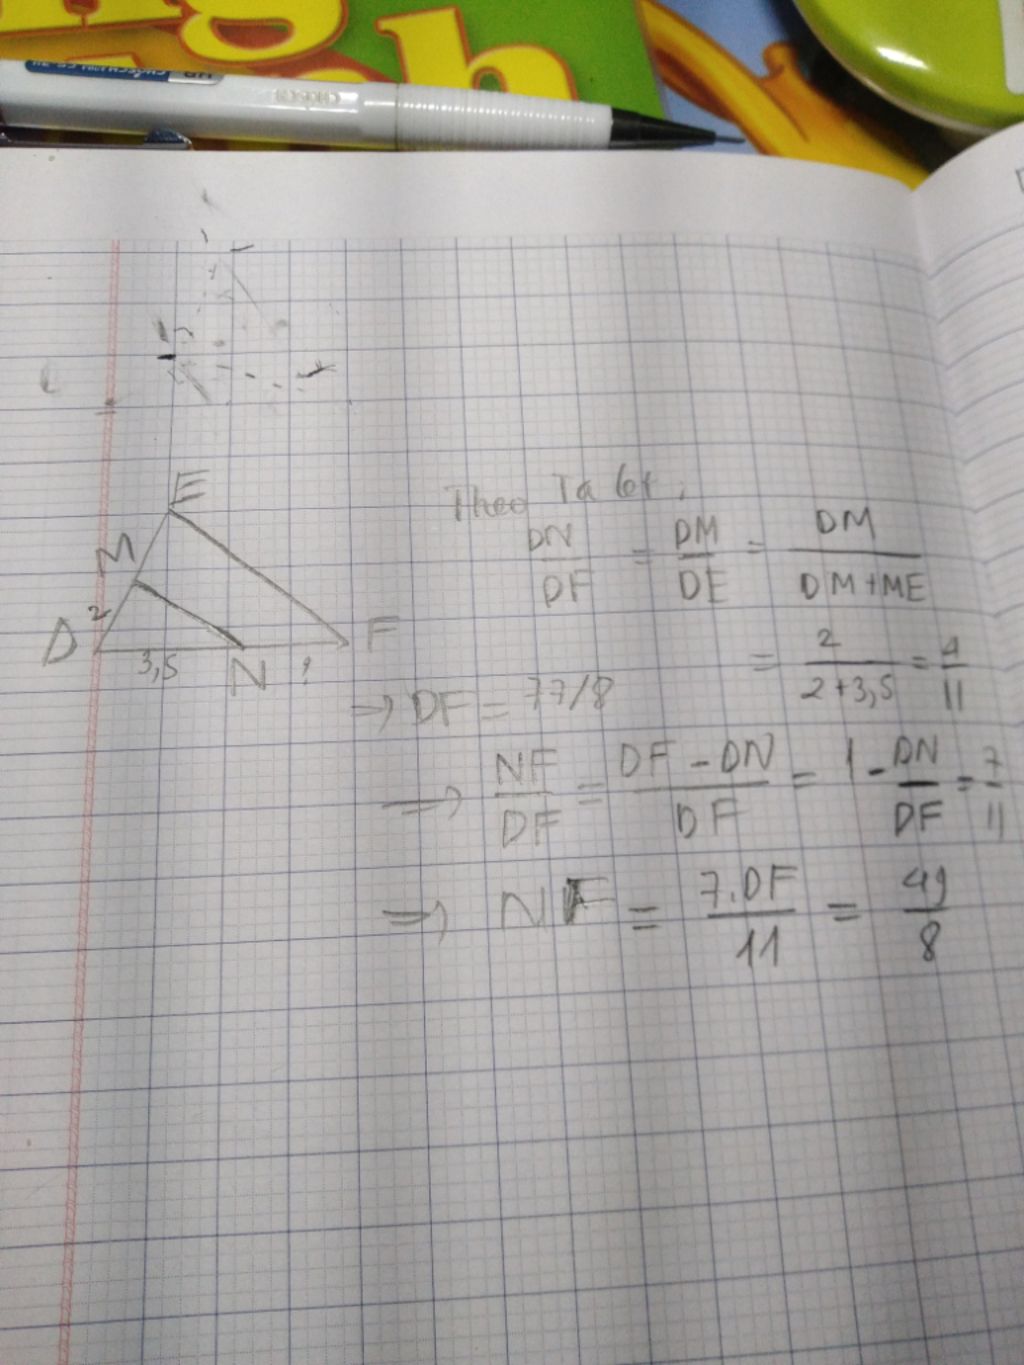 E
M
2
D
3,5
N
?
F
Theo Ta let:
DN/DF = DM/DE = DM/(DM+ME)
= 2/(2+3,5) = 4/11
→ DF = 77/8
⇒ NF/DF = (DF - DN)/DF = 1 - DN/DF = 7/11
⇒ NF = 7.DF/11 = 49/8